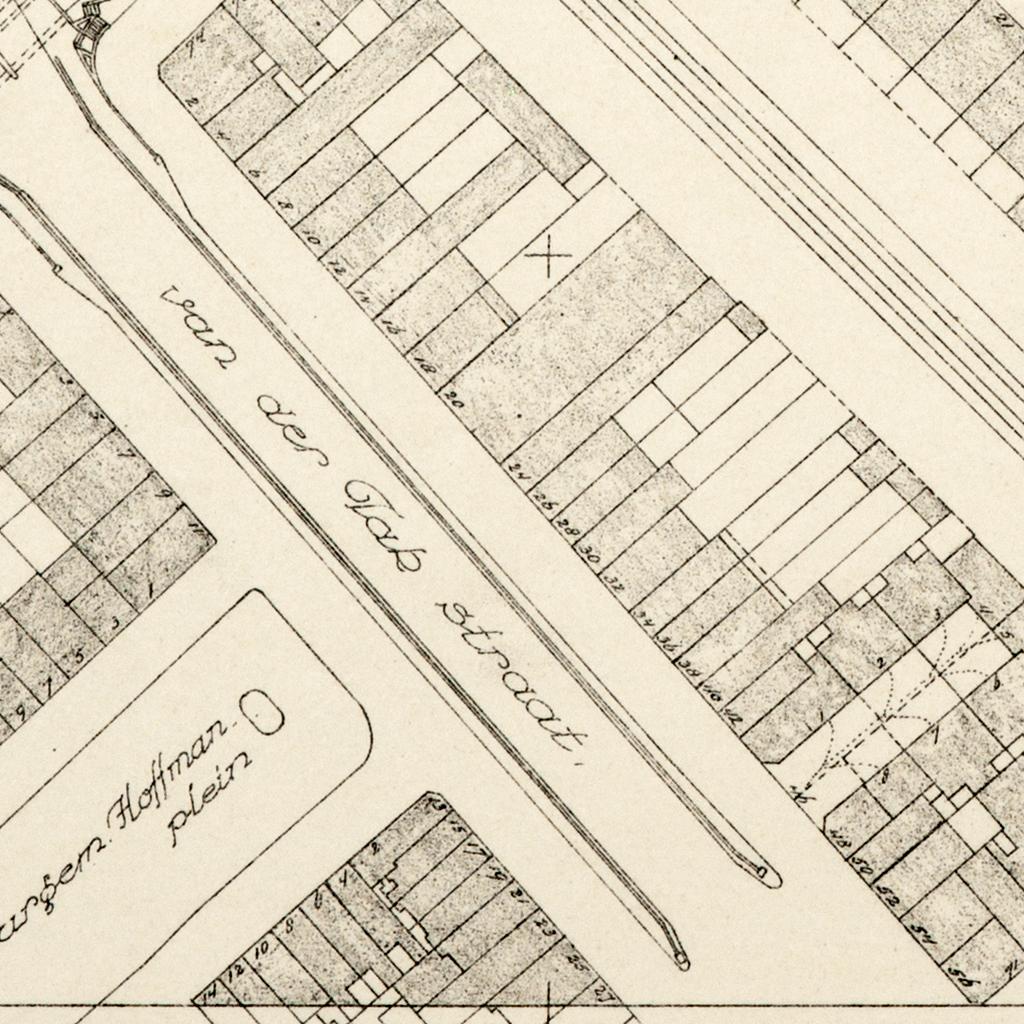 van der Tak straat.
Burgem. Hoffman-
plein
2
4
6
8
10
12
14
16
18
20
24
26
28
30
32
34
36
38
40
42
46
48
50
52
54
56
21
7
9
11
1
3
5
7
9
2
4
6
8
10
12
14
15
17
19
21
23
25
27